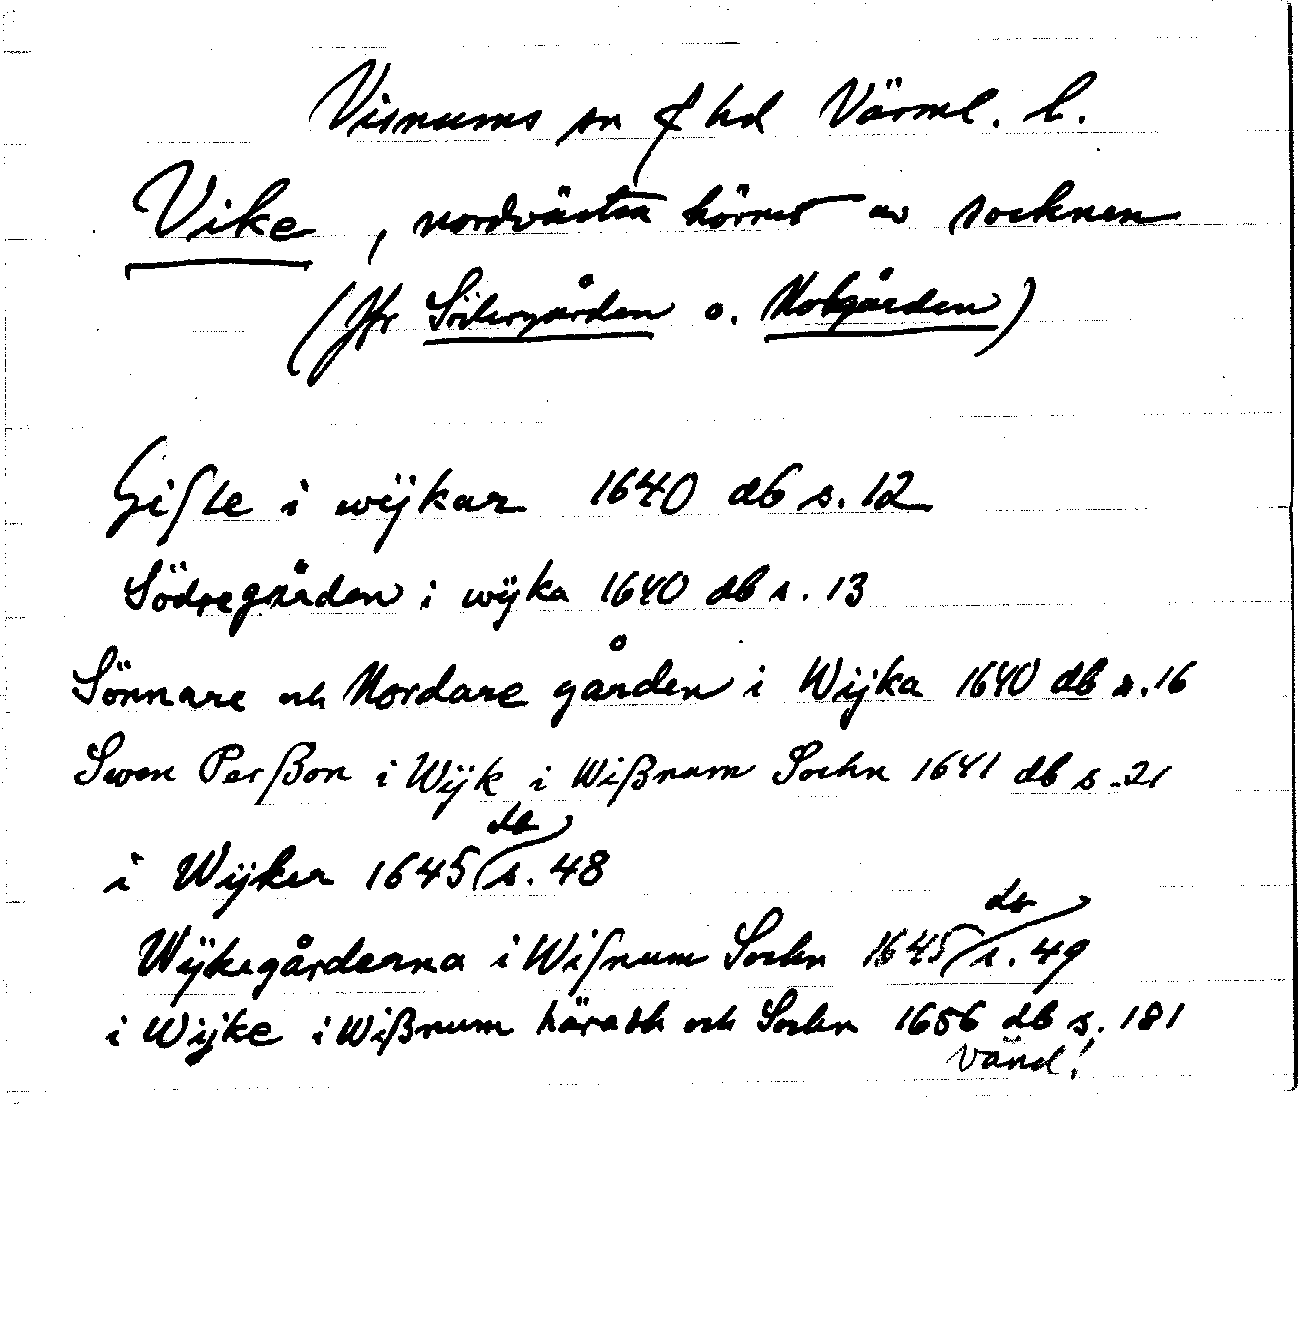 Visnums sn o hd Värml. l.
Vike, nordvästra hörnet av socknen
(Jfr Södergården o. Norgården)
Gisle i wijkar 1640 db s. 12
Södregården i wÿka 1640 db s. 13
Sönnare och Nordare gården i Wijka 1640 db s. 16
Swen Perßon i Wijk i Wißnum Sockn 1641 db s. 21
i Wijker 1645 db s. 48
Wÿkegårderna i Wisnum Sockn 1645 db s. 49
i Wijke i Wißnum häradh och Sockn 1656 db s. 181
Vänd!